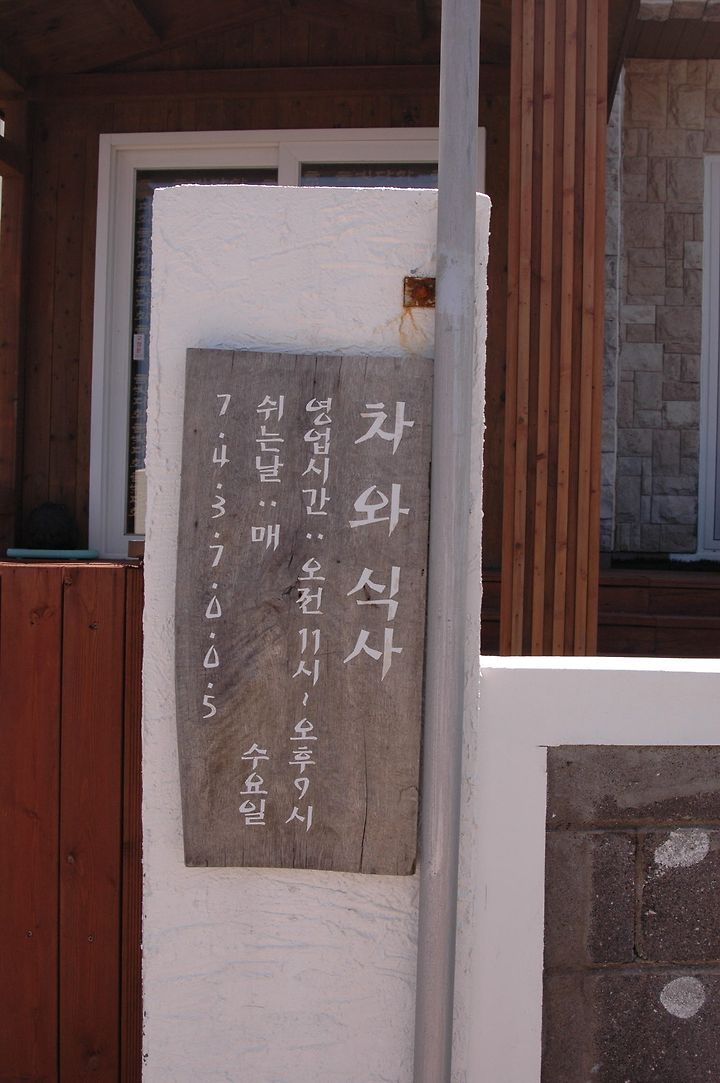 차와 식사
영업시간 : 오전 11시 ~ 오후 9시
쉬는날 : 매 수요일
7.4.3.7.0.0.5